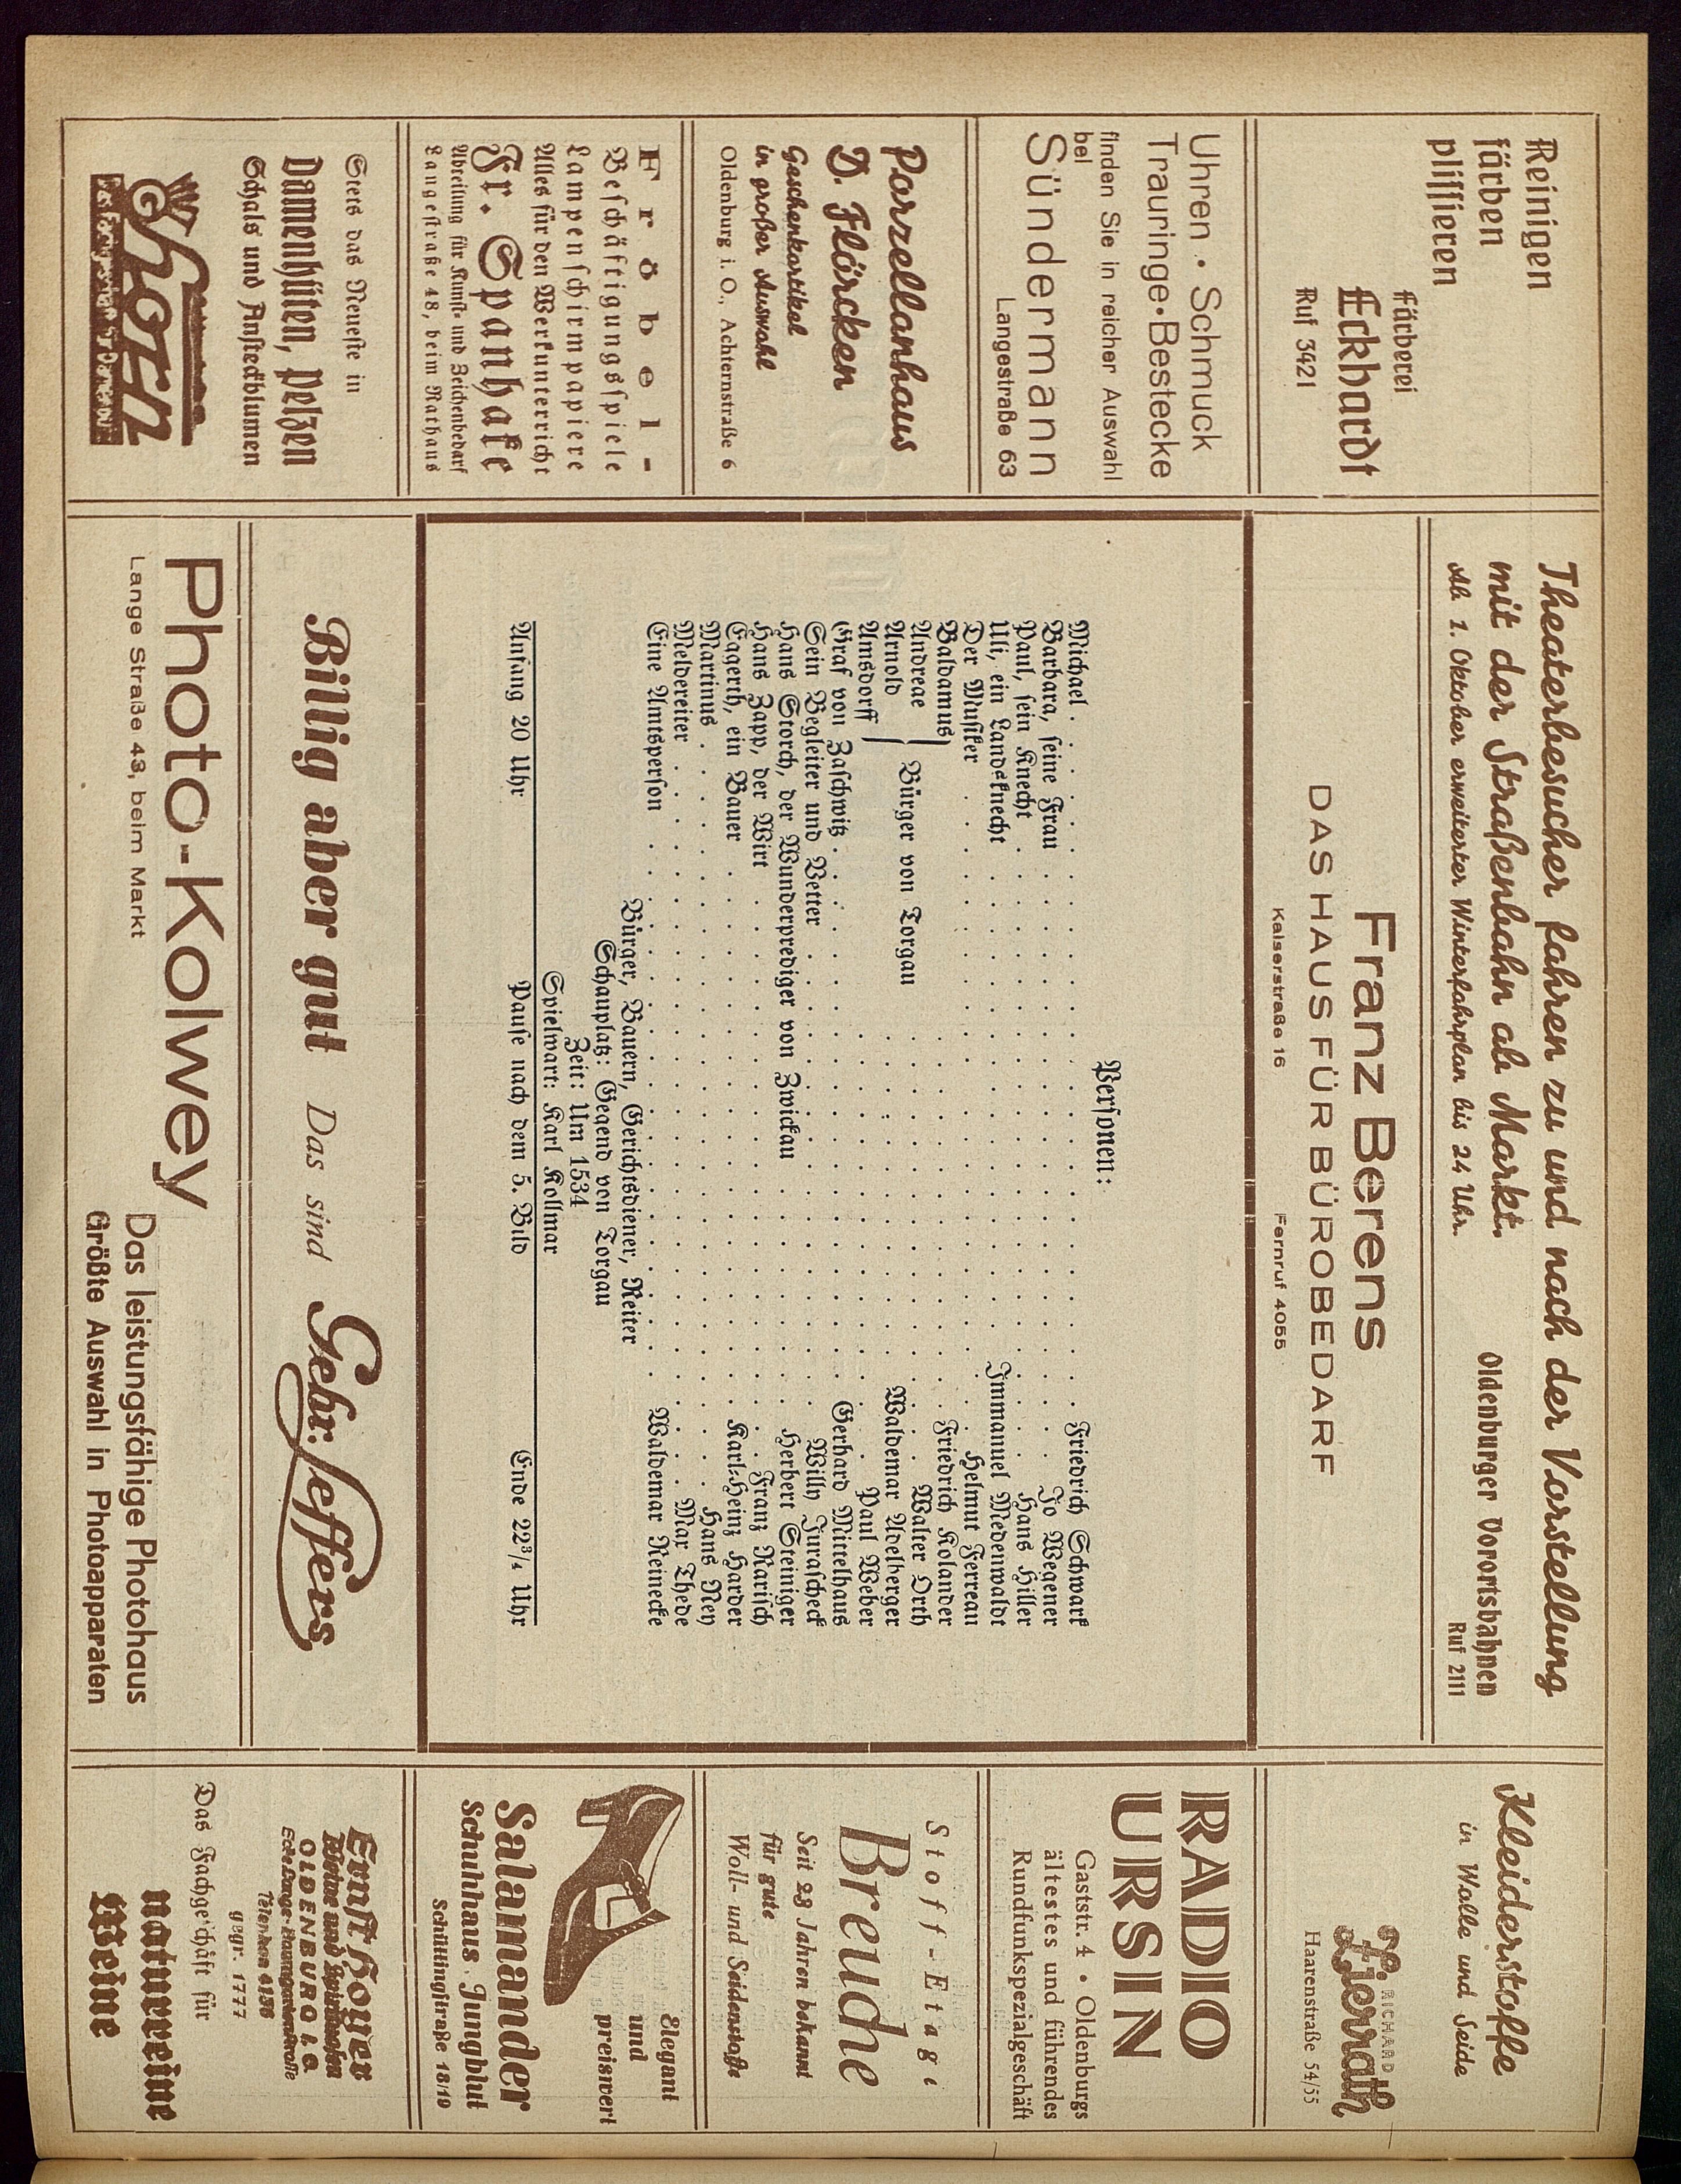 Reinigen
färben
plissieren
Färberei
Eckhardt
Ruf 3421
Uhren • Schmuck
Trauringe • Bestecke
finden Sie in reicher Auswahl
bei
Sündermann
Langestraße 63
Porzellanhaus
D. Flörcken
Geschenkartikel
in großer Auswahl
Oldenburg i. O., Achternstraße 6
Fröbel-
Beschäftigungsspiele
Lampenschirmpapiere
Alles für den Werkunterricht
Fr. Spanhake
Abteilung für Kunst- und Zeichenbedarf
Langestraße 48, beim Rathaus
Stets das Neueste in
Damenhüten, Pelzen
Schals und Ansteckblumen
Horn
Theaterbesucher fahren zu und nach der Vorstellung
mit der Straßenbahn ab Markt.
Oldenburger Vorortsbahnen
Ab 1. Oktober erweiterter Winterfahrplan bis 24 Uhr.
Ruf 2111
Franz Berens
DAS HAUS FÜR BÜROBEDARF
Kaiserstraße 16 Fernruf 4055
Personen:
Michael . . . Friedrich Schwark
Barbara, seine Frau . . . Jo Wegener
Paul, sein Knecht . . . Hans Hiller
Uli, ein Landsknecht . . . Immanuel Medenwaldt
Der Musiker . . . Helmut Ferreau
Baldamus . . . Friedrich Kolander
Andreae . . . Walter Orth
Arnold } Bürger von Torgau . . . Waldemar Adelberger
Amsdorff . . . Paul Weber
Graf von Zaschwitz . . . Gerhard Mittelhaus
Sein Begleiter und Vetter . . . Willy Jurascheck
Hans Storch, der Wunderprediger von Zwickau . . . Herbert Steiniger
Hans Zapp, der Wirt . . . Franz Rarisch
Eggerth, ein Bauer . . . Karl-Heinz Harder
Martinus . . . Hans Ney
Meldereiter . . . Max Thede
Eine Amtsperson . . . Waldemar Reinecke
Bürger, Bauern, Gerichtsdiener, Reiter
Schauplatz: Gegend von Torgau
Zeit: Um 1534
Spielwart: Karl Kollmar
Anfang 20 Uhr Pause nach dem 5. Bild Ende 22³/₄ Uhr
Billig aber gut Das sind Gebr. Leffers
Photo-Kolwey
Lange Straße 43, beim Markt
Das leistungsfähige Photohaus
Größte Auswahl in Photoapparaten
Kleiderstoffe
in Wolle und Seide
RICHARD
Lierrath
Haarenstraße 54/55
RADIO
URSIN
Gaststr. 4 • Oldenburgs
ältestes und führendes
Rundfunkspezialgeschäft
Stoff-Etage
Breuche
Seit 23 Jahren bekannt
für gute
Woll- und Seidenstoffe
Elegant
und
preiswert
Salamander
Schuhhaus Jungblut
Schüttingstraße 18/19
Ernst Hoyer
Weine und Spirituosen
OLDENBURG i. O.
Ecke Lange- Baumgartenstraße
Telephon 4136
gegr. 1777
Das Fachgeschäft für
naturreine
Weine